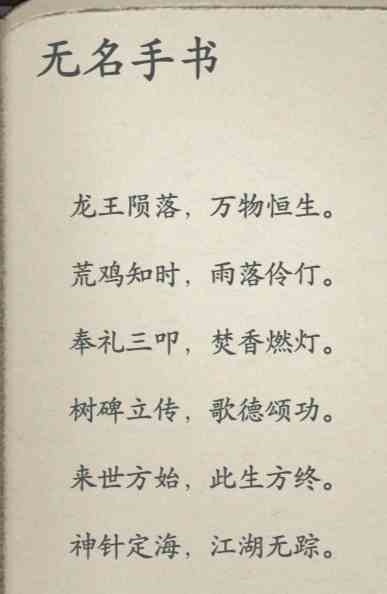 无名手书
龙王陨落，万物恒生。
荒鸡知时，雨落伶仃。
奉礼三叩，焚香燃灯。
树碑立传，歌德颂功。
来世方始，此生方终。
神针定海，江湖无踪。